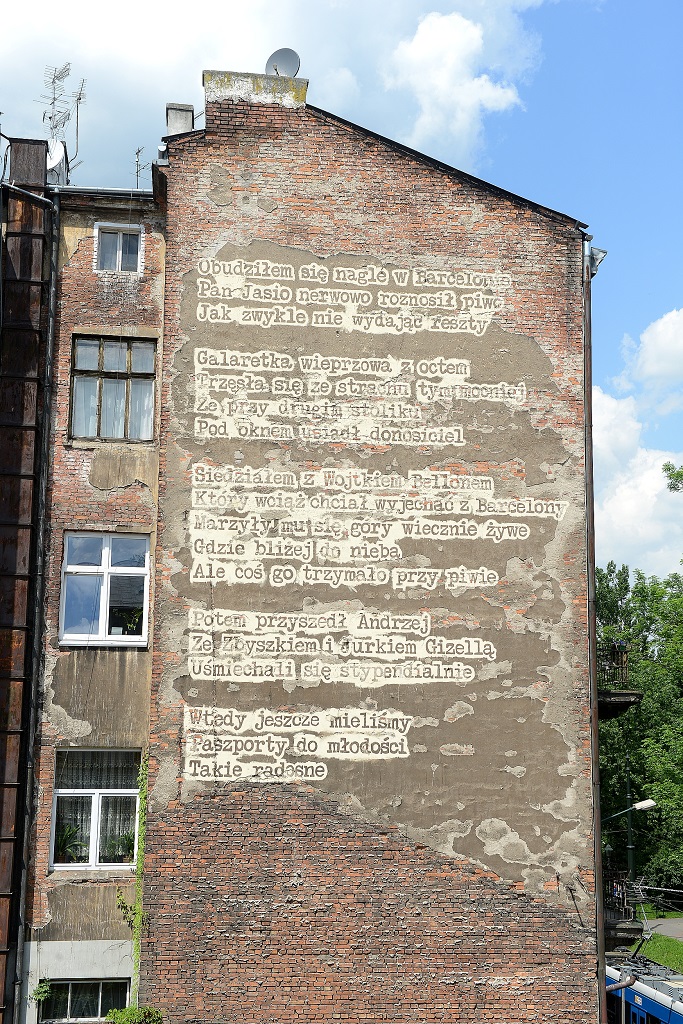 Obudziłem się nagle w Barcelonie
Pan Jasio nerwowo roznosił piwo
Jak zwykle nie wydając reszty
Galaretka wieprzowa z octem
Trzęsła się ze strachu tym mocniej
Że przy drugim stoliku
Pod oknem usiadł donosiciel
Siedziałem z Wojtkiem Bellonem
Który wciąż chciał wyjechać z Barcelony
Marzyły mu się góry wiecznie żywe
Gdzie bliżej do nieba
Ale coś go trzymało przy piwie
Potem przyszedł Andrzej
Ze Zbyszkiem i Jurkiem Gizellą
Uśmiechali się stypendialnie
Wtedy jeszcze mieliśmy
Paszporty do młodości
Takie radosne